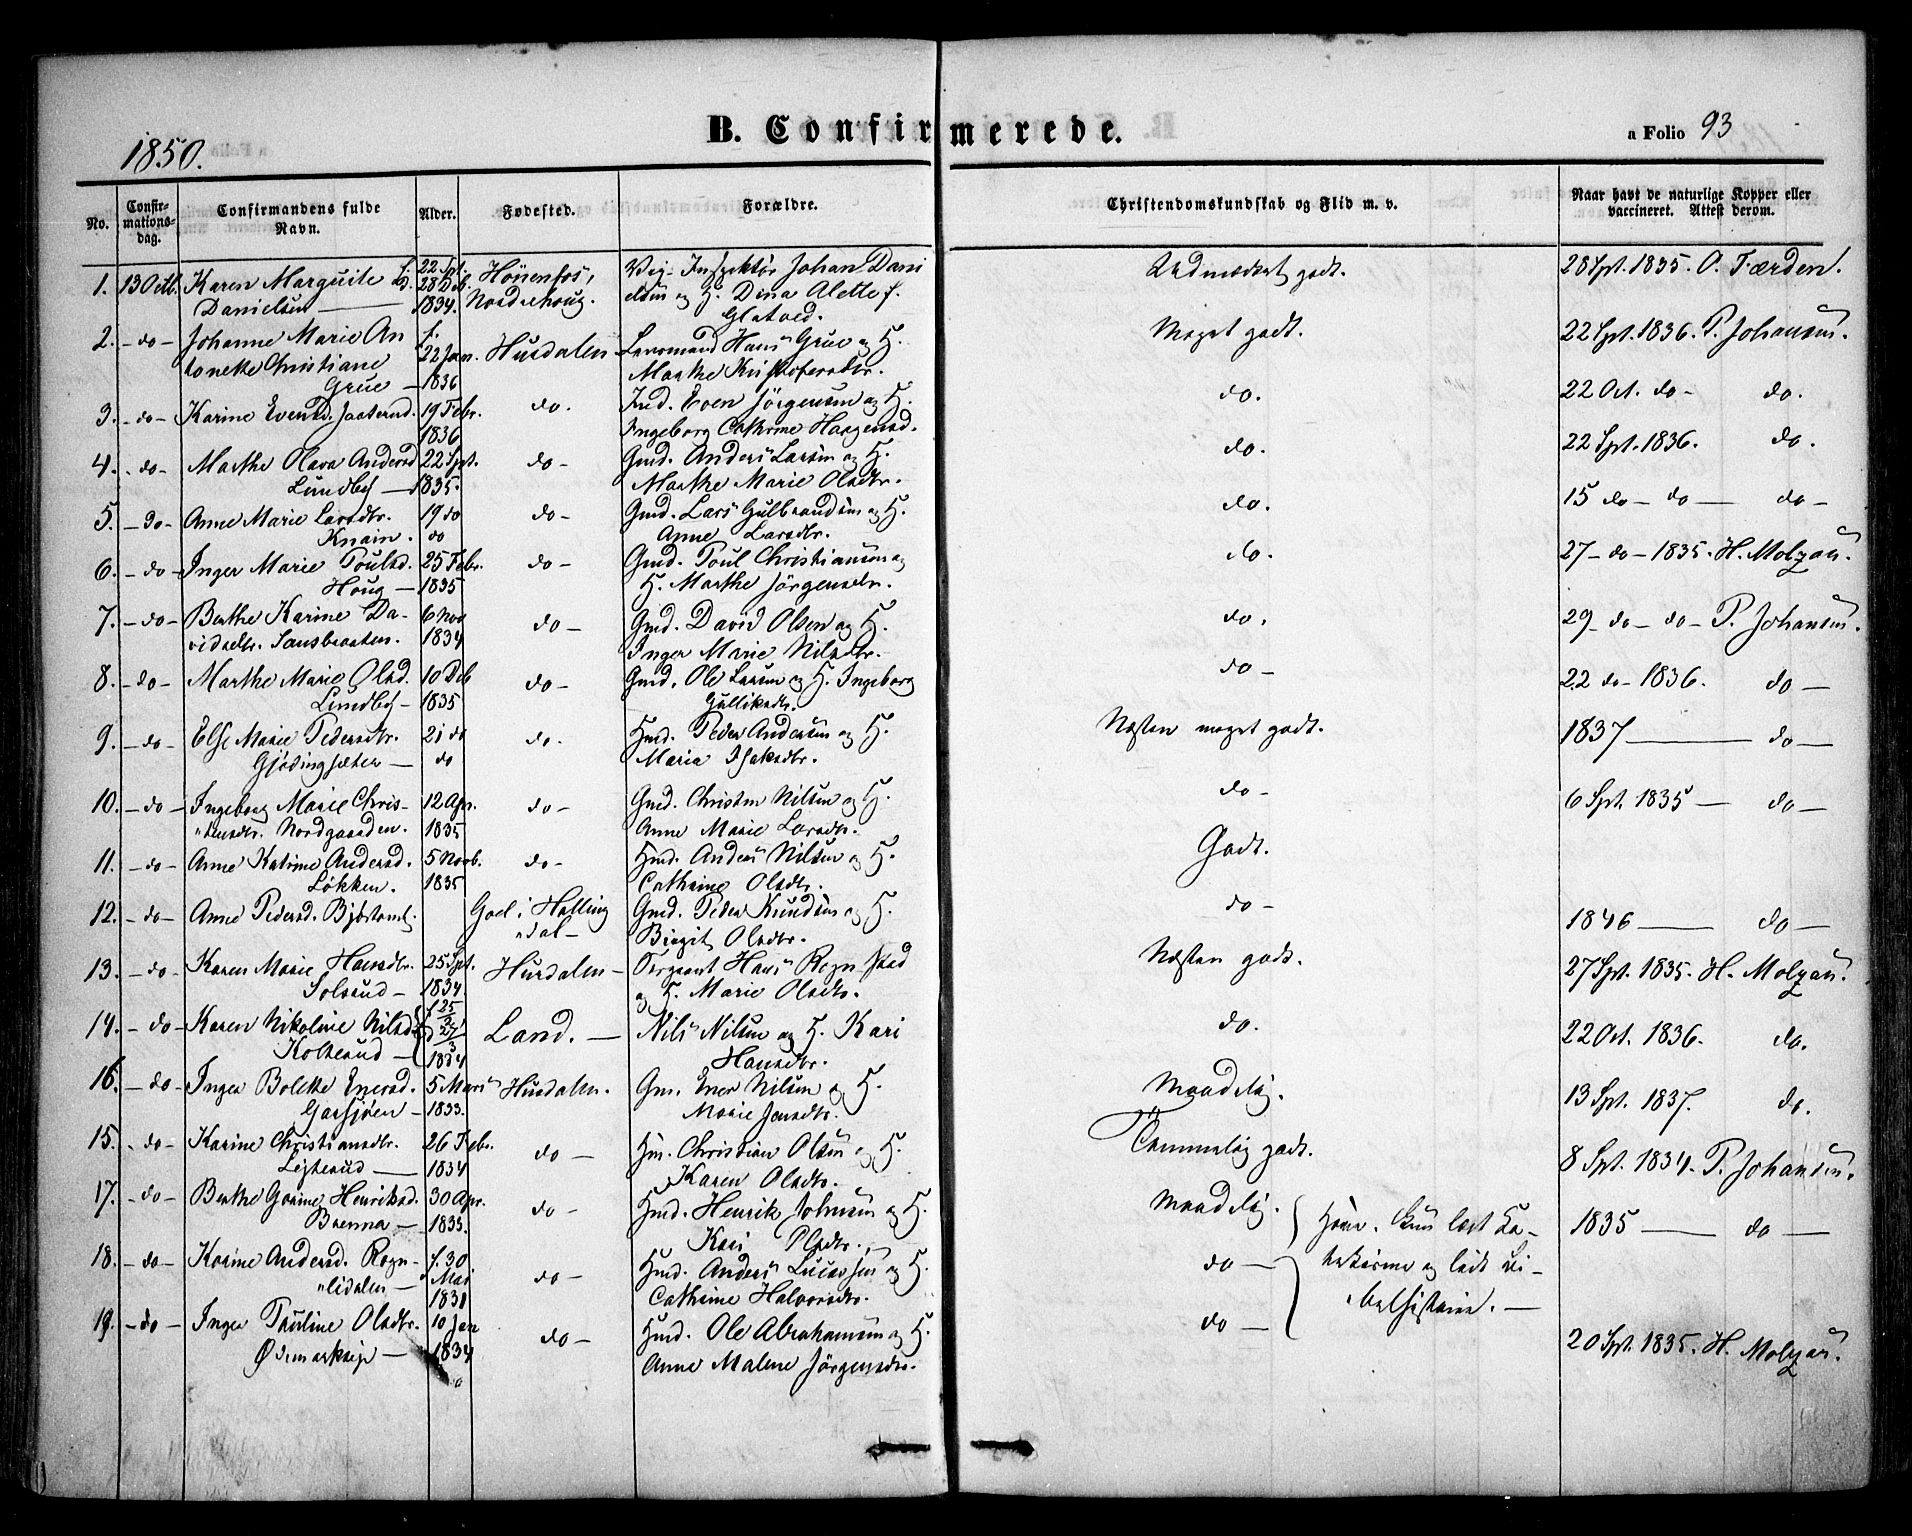 1850.
B. Confirmerede.
a Folio 93
No.
Confir-
mations-
dag.
Confirmandens fulde
Navn.
Alder.
Fødested.
Forældre.
Christendomskundskab og Flid m. v.
Naar havt de naturlige Kopper eller
vaccineret. Attest derom.
1. 13 Octb. Karen Margrite f. 22 Spt. Hönenfos, Vei-Inspektör Johan Dani Udmærket godt. 28 Spt. 1835. O. Færden.
Danielsen 28 Deb. 1834. Norderhoug. elsen og H. Dina Alette f.
Glatved.
2. -do- Johanne Marie An f. 22 Jan. Hurdalen Lensmand Hans Grue og H. Meget godt. 22 Spt. 1836. P. Johansen.
tonette Christiane
Grue 1836 Marthe Kristofersdtr.
3. -do- Karine Evensd. Jaaterud. 19 Febr. do. Ind. Even Jörgensen og H. do. 22 Oct. do- do.
1836 Ingeborg Cathrine Haagensd.
4. -do- Marthe Olava Andersd 22 Spt. do- Gmd. Anders Larsen og H. do. 22 Spt. 1836. do.
Lundby 1835. Marthe Marie Olsdtr.
5. -do- Anne Marie Larsdtr. 19 do do- Gmd. Lars Gulbrandsen og H. do. 15 do- do- do-
Knain. do Anne Larsdtr.
6. -do- Inger Marie Poulsd. 25 Febr. do- Gmd. Poul Christiansen og do. 27- do- 1835. H. Molzau.
Houg 1835 H. Marthe Jörgensdtr.
7. -do- Berthe Karine Da- 6 Nov do- Gmd. David Olsen og H. do. 29- do- do- P. Johansen.
vidsdtr. Sansbraaten. 1834 Inger Marie Nilsdtr.
8. -do- Marthe Marie Olsd. 10 Deb do- Gmd. Ole Larsen og H. Ingeborg do- 22 do- 1836. do-
Lundby- 1835 Gulliksdtr.
9. -do- Else Marie Pedersdtr. 21 do do. Hmd. Peder Andersen og H. Næsten meget godt. 1837 do-
Gjödingsæter do Maria Isaksdtr.
10. -do- Ingeborg Marie Chris- 12 Apr. do- Gmd. Christen Nilsen og H. do- 6 Spt. 1835 do-
"tensdtr. Nordgaarden. 1835 Anne Marie Larsdtr.
11. -do- Anne Katrine Andersd. 5 Novb. do- Hmd. Anders Nilsen og H. Godt.
Løkken. 1835 Cathrine Olsdtr.
12. -do- Anne Pedersd. Goel i Halling Gmd. Peder Knudsen og H. do- 1846 do-
"dal- Birgit Olsdtr.
13. -do- Karen Marie Hansdtr. 25 Spt. Hurdalen Sergeant Hans Rognstad Næsten godt. 27 Spt. 1835. H. Molzau.
Solerud- 1834. og H. Marie Olsdtr.
14. -do- Karen Nikoline Nilsd f 25/2 Land. Nils Nilsen og H. Kari do. 22 Oct. 1836. do.
Kolterud d 27/3 1834 Hansdtr.
16. -do- Inger Bolette Enersd. 5 Mars Hurdalen. Gm. Ener Nilsen og H. Maadelig. 13 Spt. 1837. do.
Garsjöen 1833. Marie Jensdtr.
15. -do- Karine Christiansdtr. 26 Febr. do- Hm. Christian Olsen og H. Temmelig godt. 8 Spt. 1834. P. Johansen.
1834 Karen Olsdtr.
17. -do- Berthe Gorine Henriksd. 30 Apr. do- Hmd. Henrik Johnsen og H. Maadelig. 1835 do-
Brenna- 1833. Kari Olsdtr.
18. -do- Karine Andersd. Rogn- f. 30 do- Hmd. Anders Lucassen og H. do-
"lidalen- Mai 1831 Cathrine Halvorsdtr.
19. -do- Inger Pauline Olsdtr. 10 Jan do- Hmd. Ole Abrahamsen og H. do- 20 Spt. 1835. H. Molzau.
Ødemarkseje 1834 Anne Malene Jörgensdtr.
kun læst Ka-
tekisme og lidt Bi-
belhistorie.